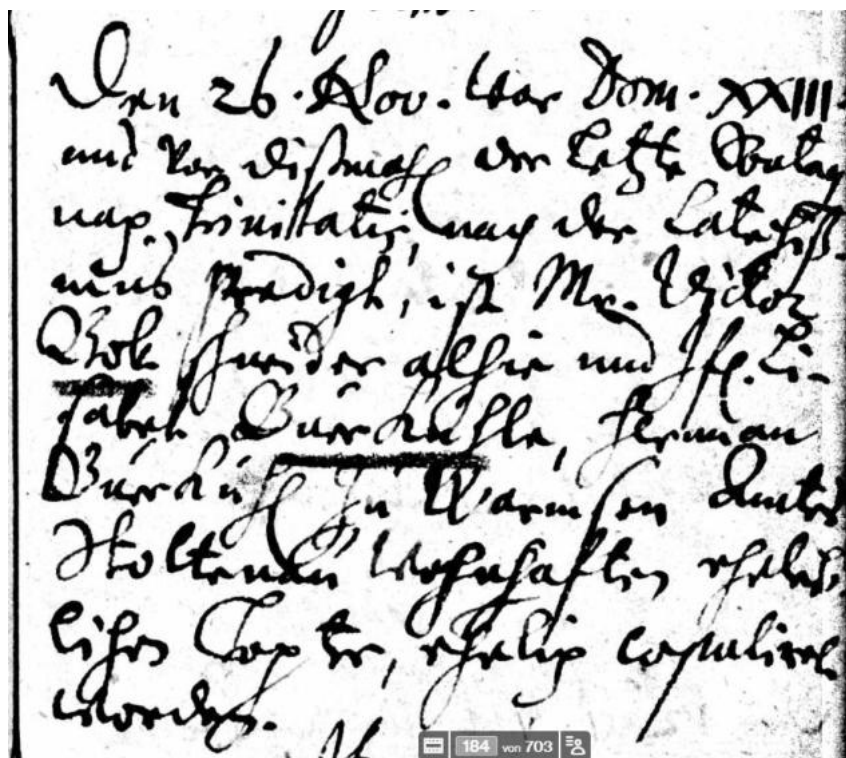 Den 26. Nov. war Dom. XXIII.
und vor dißmahl der letzte Sontag
nach Trinitatis, nach der Catechiß-
mus Predigt, ist Mr. Victor
Bok schneider alhie und Jfr. Li-
sabet Buerkuhle, Herman
Buerkuhl zu Warmsen Amtes
Stoltenau wohnhaften ehelich
lichen Tochter, ehelich copuliret
worden.
184 von 703